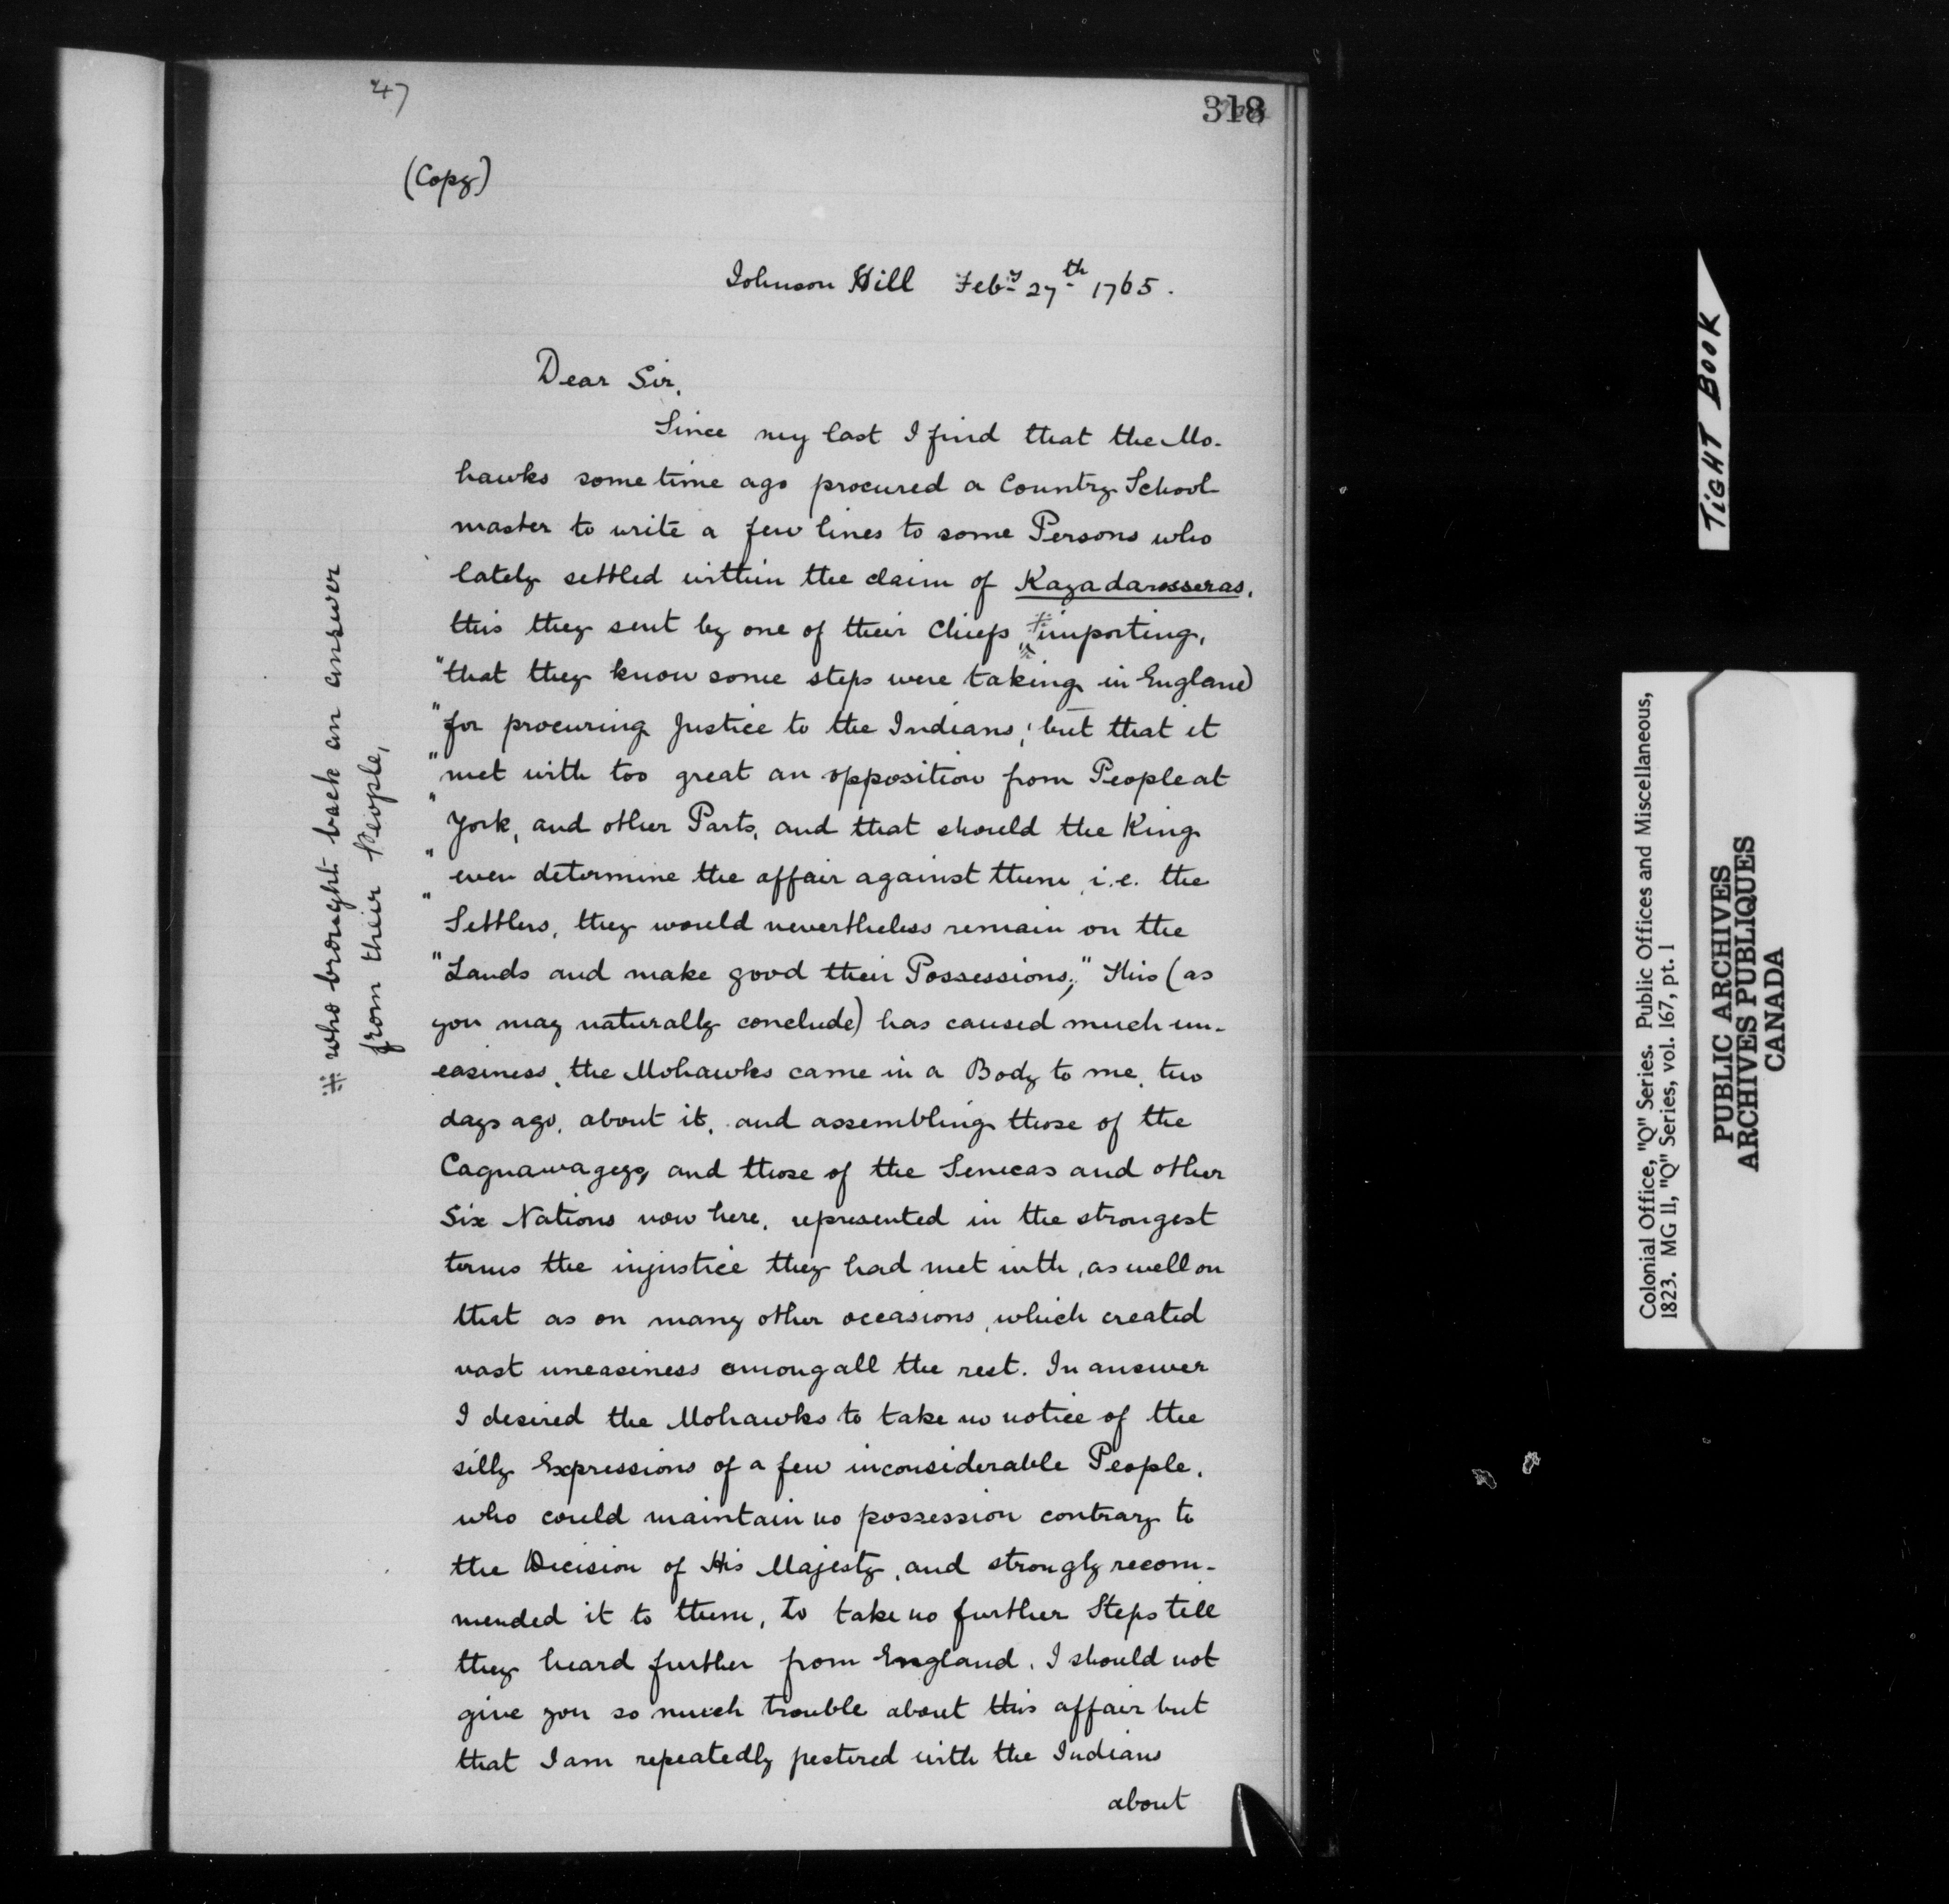 47
318
(Copy)
Johnson Hill Feby 27th 1765.
Dear Sir,
Since my last I find that the Mo-
hawks some time ago procured a Country School-
master to write a few lines to some Persons who
lately settled within the claim of Kayadarosseras,
this they sent by one of their Chiefs, # importing,
"that they know some steps were taking in England
"for procuring Justice to the Indians; but that it
"met with too great an opposition from People at
"York, and other Parts, and that should the King
"even determine the affair against them, i.e. the
"Settlers, they would nevertheless remain on the
"Lands and make good their Possessions;" This (as
you may naturally conclude) has caused much un-
easiness, the Mohawks came in a Body to me, two
days ago, about it, and assembling those of the
Cagnawagegy and those of the Senecas and other
Six Nations now here, represented in the strongest
terms the injustice they had met with, as well on
that as on many other occasions, which created
vast uneasiness among all the rest. In answer
I desired the Mohawks to take no notice of the
silly Expressions of a few inconsiderable People,
who could maintain no possession contrary to
the Decision of His Majesty, and strongly recom-
mended it to them, to take no further Steps till
they heard further from England. I should not
give you so much trouble about this affair but
that I am repeatedly pestered with the Indians
about
# who brought back an answer
from their People,
TIGHT BOOK
Colonial Office, "Q" Series. Public Offices and Miscellaneous,
1823. MG 11, "Q" Series, vol. 167, pt. 1
PUBLIC ARCHIVES
ARCHIVES PUBLIQUES
CANADA